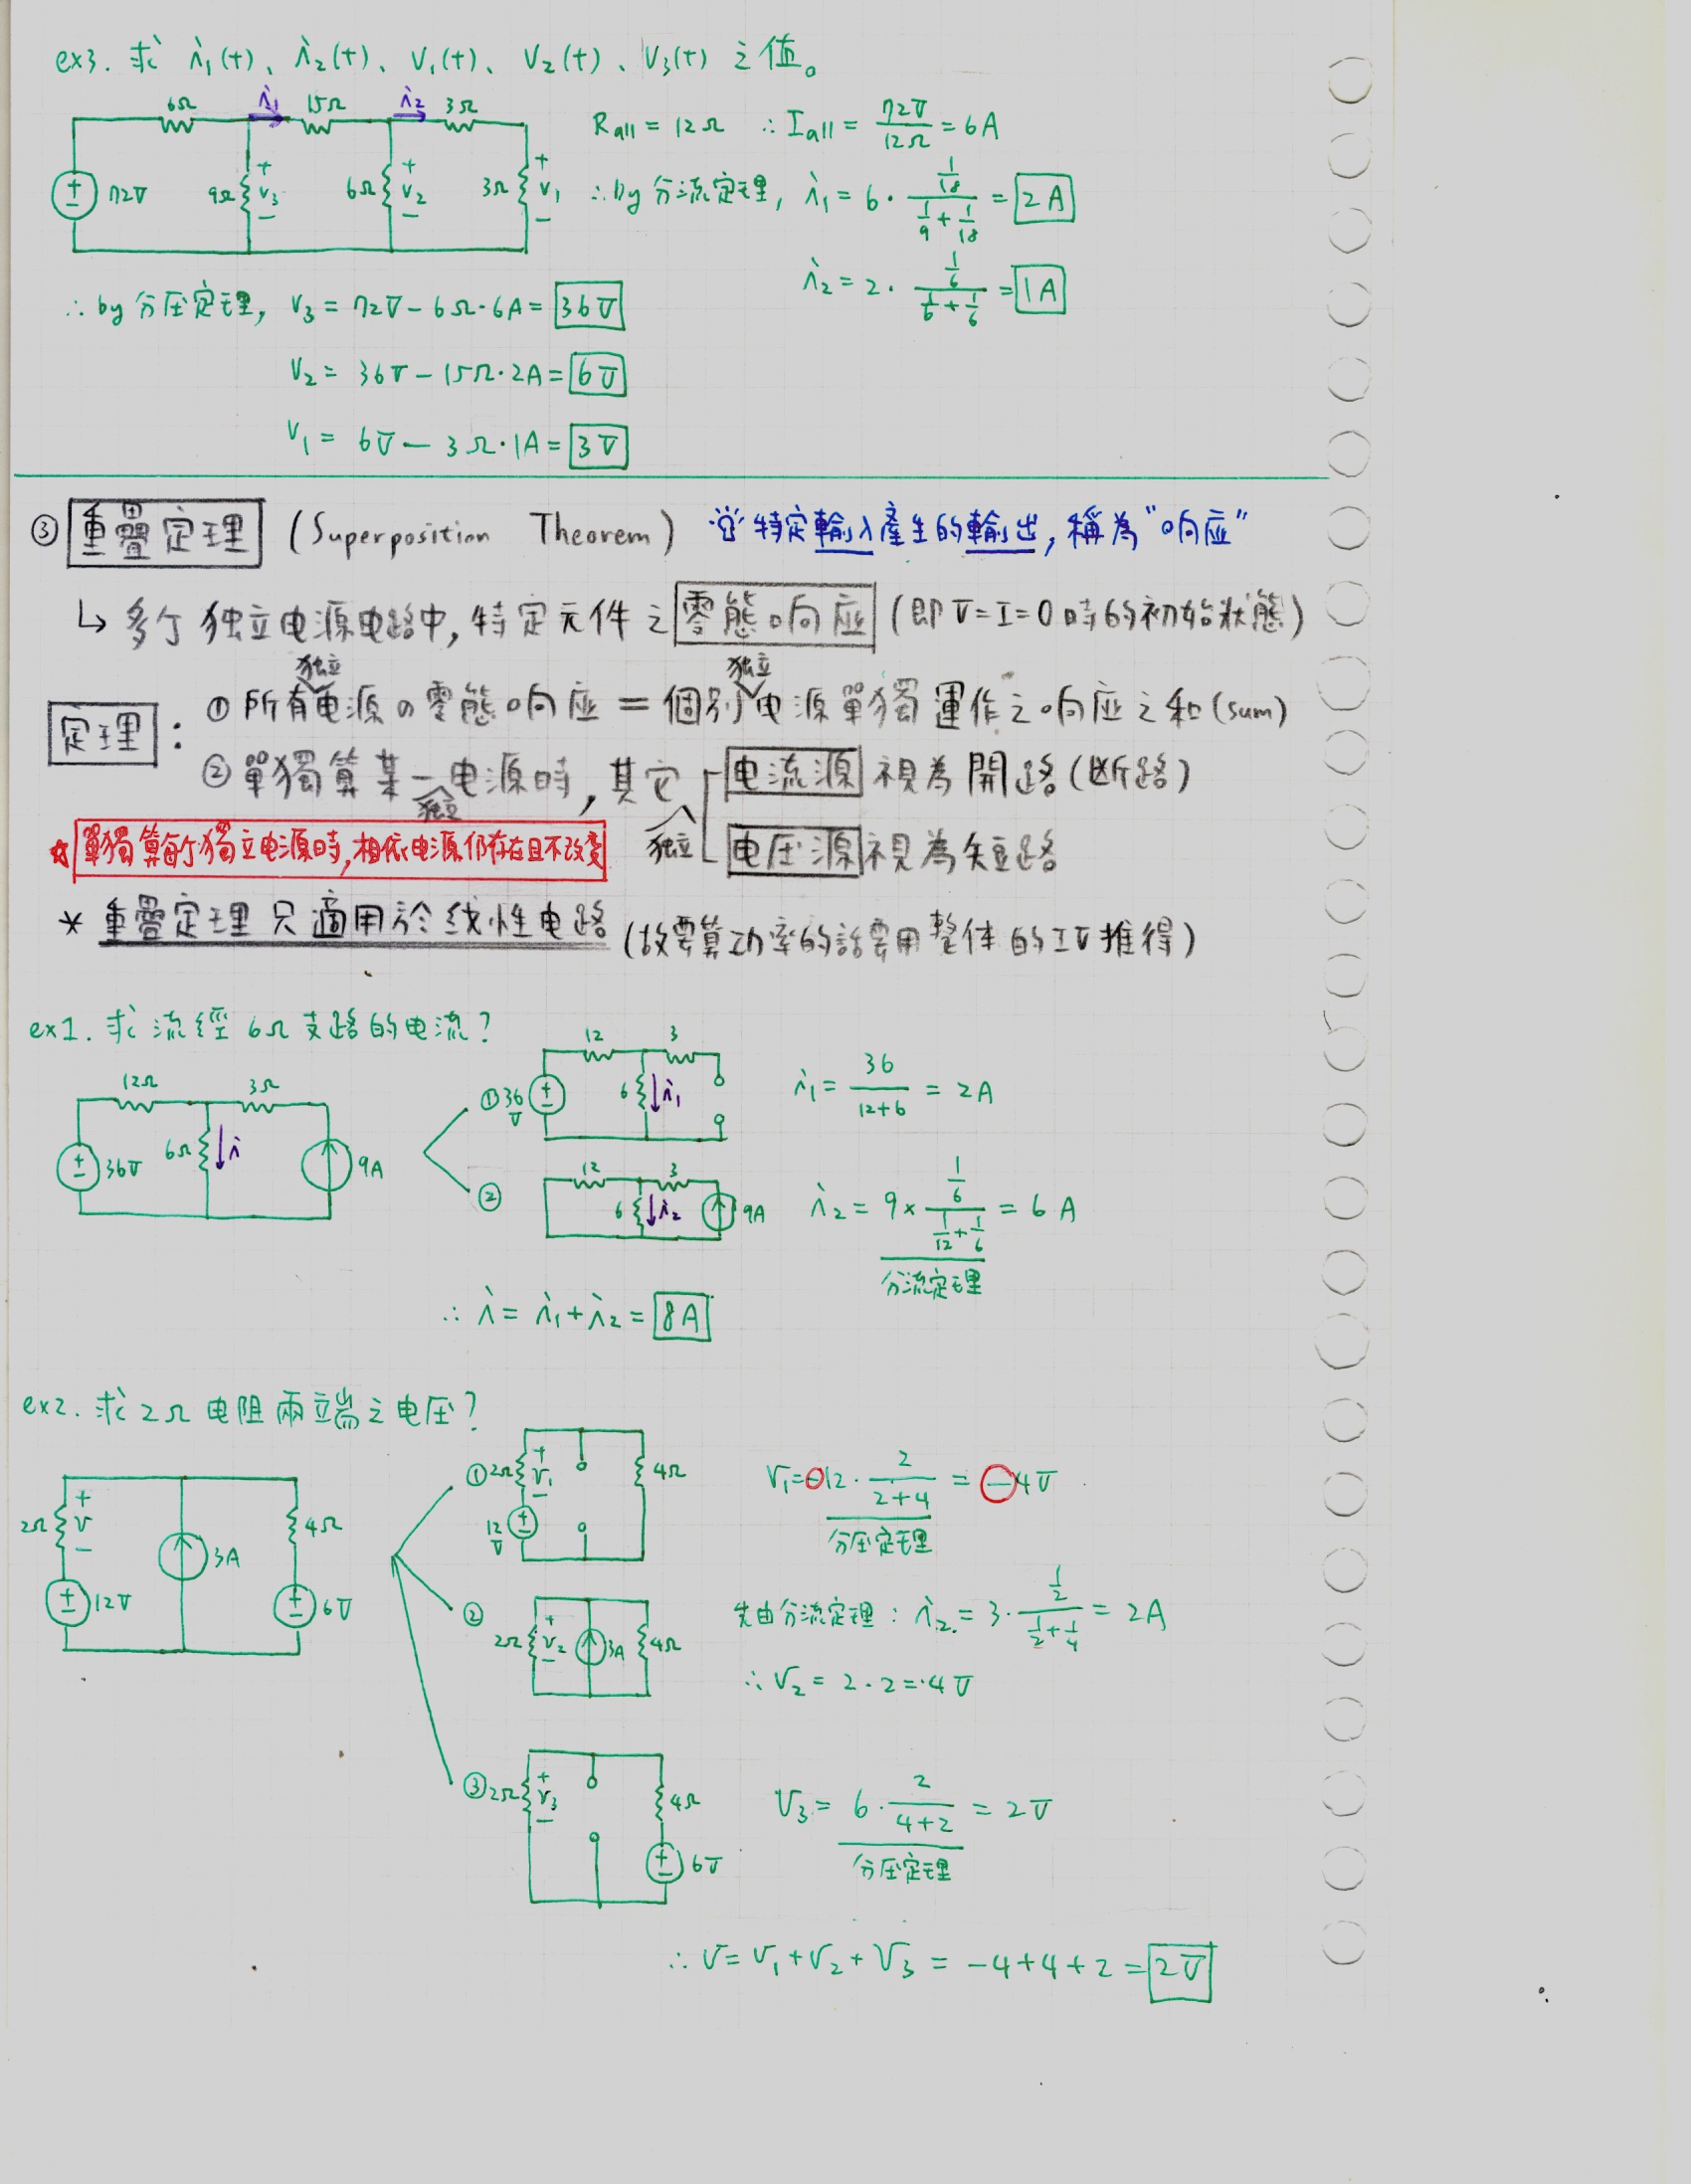 ex3. 求 i₁(t)、i₂(t)、V₁(t)、V₂(t)、V₃(t) 之值。
6Ω i₁ 15Ω i₂ 3Ω
72V 9Ω + V₃ − 6Ω + V₂ − 3Ω + V₁ −
R all = 12Ω ∴ I all = 72V/12Ω = 6A
∴ by 分流定理, i₁ = 6 · (1/18)/(1/9 + 1/18) = 2A
i₂ = 2 · (1/6)/(1/6 + 1/6) = 1A
∴ by 分压定理, V₃ = 72V − 6Ω·6A = 36V
V₂ = 36V − 15Ω·2A = 6V
V₁ = 6V − 3Ω·1A = 3V
③ 重疊定理 (Superposition Theorem) 特定輸入產生的輸出, 稱為"响应"
↳ 多个独立电源电路中, 特定元件之零態响应 (即V=I=0時的初始狀態)
定理:
① 所有独立电源の零態响应 = 個別独立电源單獨運作之响应之和(sum)
② 單獨算某一独立电源時, 其它独立 电流源 視為開路(断路)
电压源 視為短路
☆ 單獨算每个獨立电源時, 相依电源仍存在且不改变
* 重疊定理只適用於线性电路 (故要算功率的話要用整体的IV推得)
ex1. 求流經6Ω支路的电流?
12Ω 3Ω
36V 6Ω i 9A
① 36V 12 3 6 i₁
i₁ = 36/(12+6) = 2A
② 12 3 6 i₂ 9A
i₂ = 9 × (1/6)/(1/12 + 1/6) = 6A
分流定理
∴ i = i₁ + i₂ = 8A
ex2. 求2Ω电阻兩端之电压?
2Ω + V − 12V 3A 4Ω 6V
① 2Ω + V₁ − 12V 4Ω
V₁ = −12 · 2/(2+4) = −4V
分压定理
② 2Ω + V₂ − 3A 4Ω
先由分流定理: i₂ = 3 · (1/2)/(1/2 + 1/4) = 2A
∴ V₂ = 2·2 = 4V
③ 2Ω + V₃ − 4Ω 6V
V₃ = 6 · 2/(4+2) = 2V
分压定理
∴ V = V₁ + V₂ + V₃ = −4+4+2 = 2V